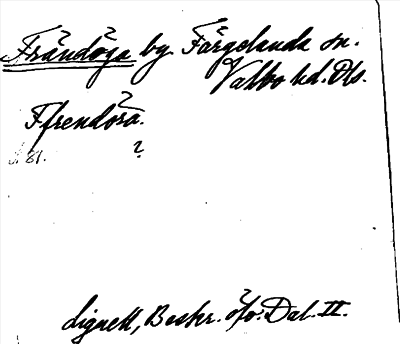 Frändöga by Färgelanda sn.
Valbo hd. Dls.
Ffrendöra.
S. 81. ?
Lignell, Beskr. öfv. Dal. II.